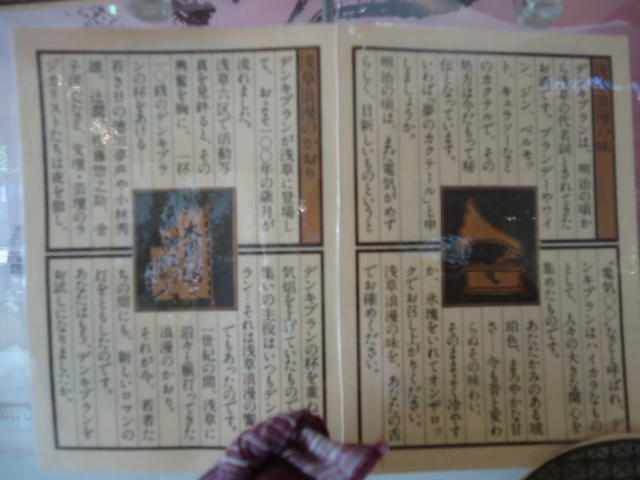 浪漫の味
デンキブランは、明治の頃か
ら浅草の代名詞とされてきた
お酒です。ブランデーやワイ
ン、ジン、ベルモッ
ト、キュラソーなど
のカクテルで、その
処方は今だもって秘
伝となっています。
いわば「夢のカクテル」と申
しましょうか。
明治の頃は、まだ電気がめず
らしく、目新しいものというと
"電気〇〇"などと呼ばれ、デ
ンキブランはハイカラなもの
として、人々の大きな関心を
集めたものです。
あたたかみのある琥
珀色、まろやかな甘
さ…今も昔も変わ
らぬその味わい。
そのままそっと冷やす
か、氷塊をいれてオンザロッ
クでお召し上がりください。
浅草浪漫の味を、あなたの舌
でお確めください。
浅草浪漫のかおり
デンキブランが浅草に登場し
て、およそ一〇〇年の歳月が
流れました。
浅草六区で活動写
真を見終ると、その
興奮を胸に、一杯
一〇銭のデンキブラ
ンの杯をあげる…。
若き日の徳川夢声や小林秀
雄、辻潤、佐藤惣之助、金
子洋文など、文壇・芸壇のラ
ジカリストたちは夜を徹し、
デンキブランの杯を重ね
気焔を上げていたもので
集いの主役はいつもデン
ラン…それは浪漫の
でもあったのです。
一世紀の間、浅草に
脈々と脈打ってきた
浪漫のかおり。
それが今、若者た
ちの間にも、新しいロマンの
灯をともしたのです。
あなたはもう、デンキブランを
お試しになりましたか。